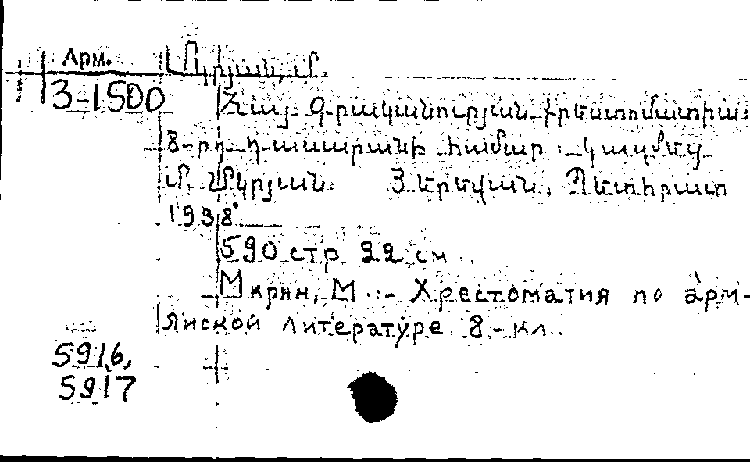 Арм.
Մկրյան, Մ.
3-1500
Հայ գրականության քրեստոմատիա
8-րդ դասարանի համար : Կազմեց
Մ. Մկրյան. Յերեվան, Պետհրատ
1938
590 стр 22 см
Мкрян, М. - Хрестоматия по арм-
янской литературе 8-кл.
5916,
5917